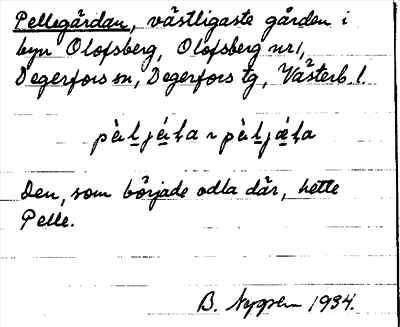 Pellegårdan, västligaste gården i
byn Olofsberg, Olofsberg nr 1,
Degerfors sn, Degerfors tg, Västerb. l.
Den, som började odla där, hette
Pelle.
B. Nygren 1934.